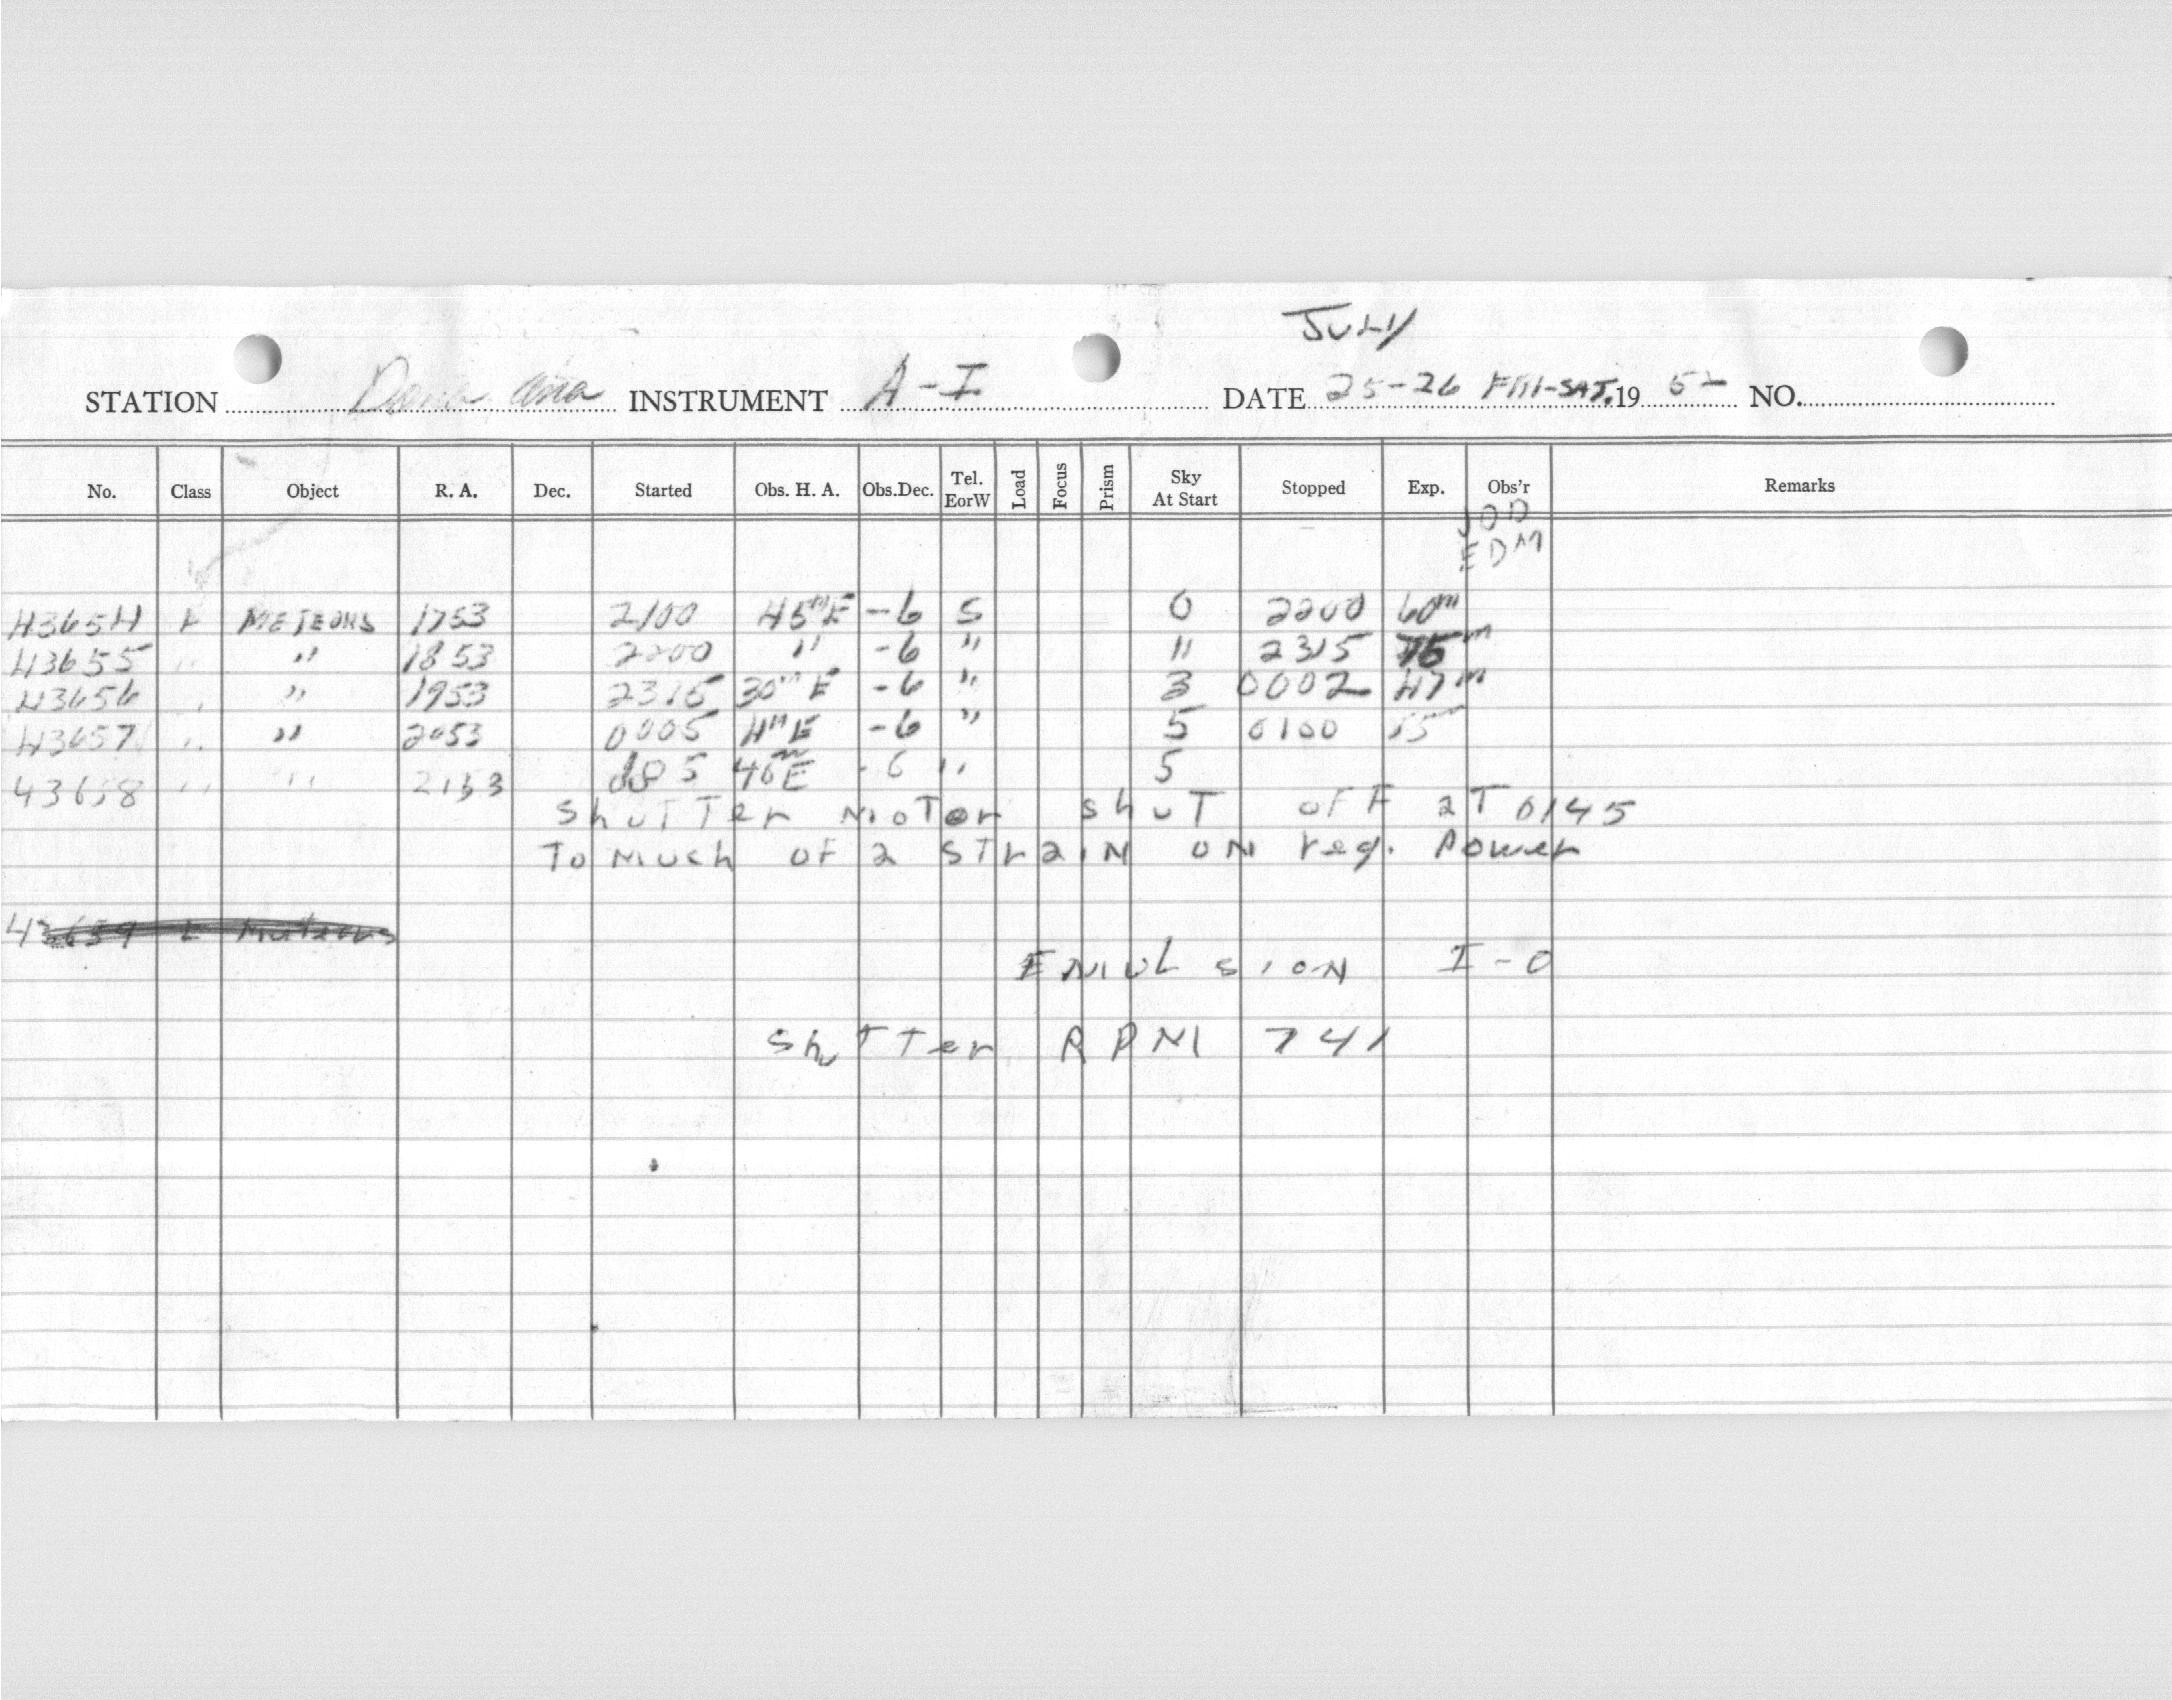 JULY
STATION Dona Ana INSTRUMENT A-I DATE 25-26 FRI-SAT. 19 52 NO.
No. Class Object R. A. Dec. Started Obs. H. A. Obs.Dec. Tel. EorW Load Focus Prism Sky At Start Stopped Exp. Obs'r Remarks
JOD
EDM
43654 L METEORS 1753 2100 45m E -6 S 0 2200 60m
43655 " " 1853 2200 " -6 " " 2315 75m
43656 " " 1953 2315 30m E -6 " 3 0002 47m
43657 " " 2053 0005 4m E -6 " 5 0100 55
43658 " " 2153 5 46m E -6 " 5
Shutter Motor shut off at 0145
To Much of a strain on reg. Power
43659 L Meteors
EMULSION I-O
Shutter RPM 741